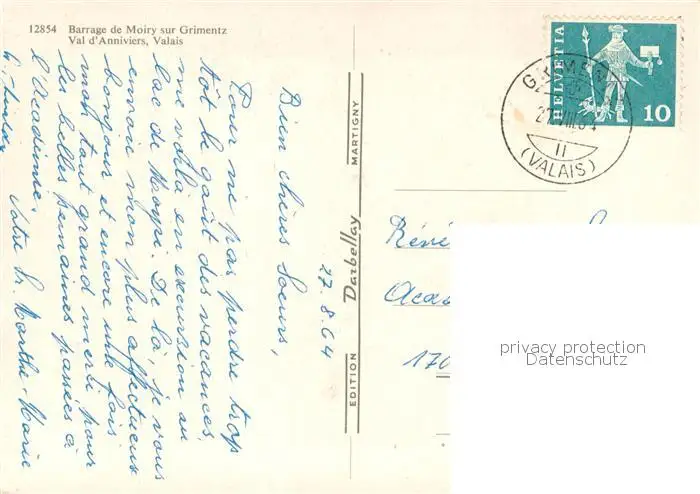 12854 Barrage de Moiry sur Grimentz
Val d'Anniviers, Valais
27.8.64
Bien chères Soeurs,
Pour ne pas perdre trop
tôt le goût des vacances,
me voilà en excursion au
lac de Moiry. De là, je vous
envoie mon plus affectueux
bonjour et encore une fois
mon tout grand merci pour
les belles semaines passées à
l'Académie.
Votre Sr. Marthe-Marie
EDITION Darbellay MARTIGNY
HELVETIA
10
27.VIII.64
11
(VALAIS)
170
privacy protection
Datenschutz